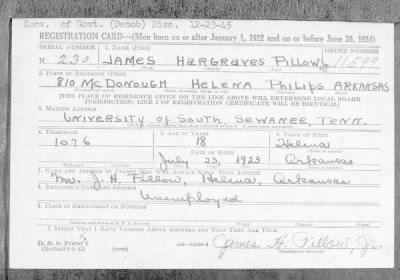 Conv. of Govt. (Demob) Disc. 12-23-45
REGISTRATION CARD—(Men born on or after January 1, 1922 and on or before June 30, 1924)
SERIAL NUMBER 1. NAME (Print) ORDER NUMBER
N 230 JAMES HARGRAVES PILLOW, Jr. 11599
(First) (Middle) (Last)
2. PLACE OF RESIDENCE (Print)
810 McDONOUGH HELENA PHILIPS ARKANSAS
[THE PLACE OF RESIDENCE GIVEN ON THE LINE ABOVE WILL DETERMINE LOCAL BOARD
JURISDICTION; LINE 2 OF REGISTRATION CERTIFICATE WILL BE IDENTICAL]
3. MAILING ADDRESS
UNIVERSITY OF SOUTH, SEWANEE, TENN.
4. TELEPHONE 5. AGE IN YEARS 6. PLACE OF BIRTH
1076 18 Helena
DATE OF BIRTH
July 23, 1923 Arkansas
7. NAME AND ADDRESS OF PERSON WHO WILL ALWAYS KNOW YOUR ADDRESS
Mrs. J. H. Pillow, Helena, Arkansas
8. EMPLOYER'S NAME AND ADDRESS
Unemployed
9. PLACE OF EMPLOYMENT OR BUSINESS
I AFFIRM THAT I HAVE VERIFIED ABOVE ANSWERS AND THAT THEY ARE TRUE.
D. S. S. Form 1
(over) James H. Pillow, Jr.